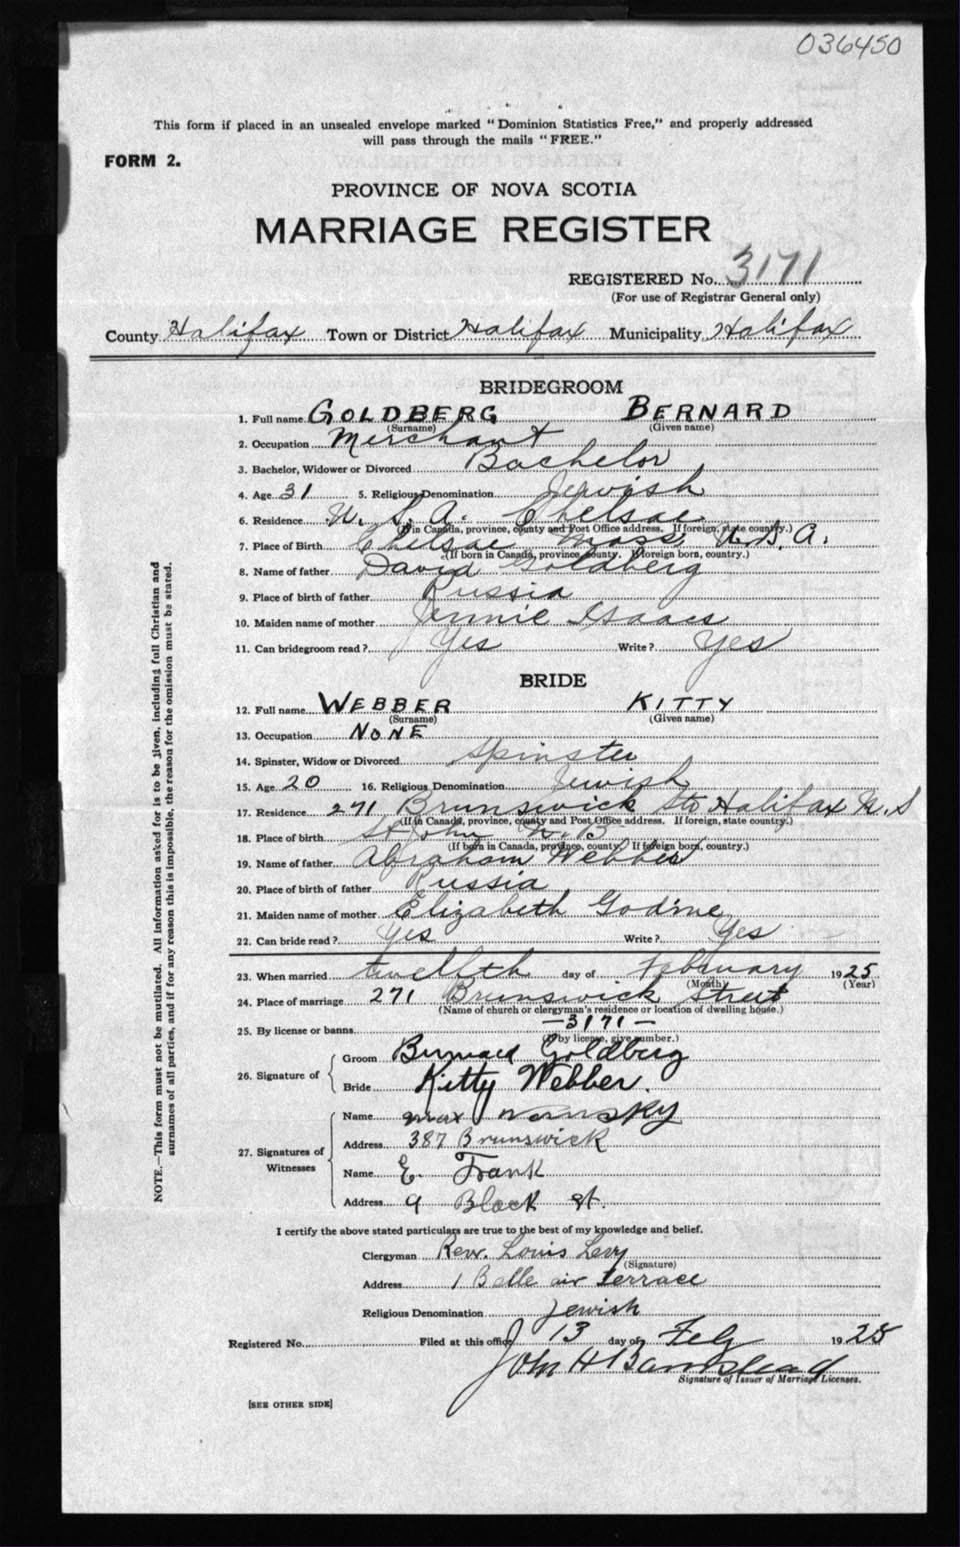 036450
This form if placed in an unsealed envelope marked "Dominion Statistics Free," and properly addressed
will pass through the mails "FREE."
FORM 2.
PROVINCE OF NOVA SCOTIA
MARRIAGE REGISTER
REGISTERED No. 3171
(For use of Registrar General only)
County Halifax Town or District Halifax Municipality Halifax
BRIDEGROOM
1. Full name GOLDBERG BERNARD
(Surname) (Given name)
2. Occupation Merchant
3. Bachelor, Widower or Divorced Bachelor
4. Age 31 5. Religious Denomination Jewish
6. Residence U. S. A. Chelsae
(If in Canada, province, county and Post Office address. If foreign, state country.)
7. Place of Birth Chelsae Mass. U.S.A.
(If born in Canada, province, county. If foreign born, country.)
8. Name of father David Goldberg
9. Place of birth of father Russia
10. Maiden name of mother Jennie Isaacs
11. Can bridegroom read? Yes Write? Yes
BRIDE
12. Full name WEBBER KITTY
(Surname) (Given name)
13. Occupation NONE
14. Spinster, Widow or Divorced Spinster
15. Age 20 16. Religious Denomination Jewish
17. Residence 271 Brunswick St. Halifax N.S
(If in Canada, province, county and Post Office address. If foreign, state country.)
18. Place of birth St John N.B
(If born in Canada, province, county. If foreign born, country.)
19. Name of father Abraham Webber
20. Place of birth of father Russia
21. Maiden name of mother Elizabeth Godine
22. Can bride read? Yes Write? Yes
23. When married twelfth day of February 1925
(Month) (Year)
24. Place of marriage 271 Brunswick Street
(Name of church or clergyman's residence or location of dwelling house.)
25. By license or banns —3171—
(If by license, give number.)
26. Signature of
Groom Bernard Goldberg
Bride Kitty Webber.
27. Signatures of Witnesses
Name Max
Address 387 Brunswick
Name E. Frank
Address 9 Block st.
I certify the above stated particulars are true to the best of my knowledge and belief.
Clergyman Rev. Louis Levy
(Signature)
Address 1 Belle air terrace
Religious Denomination Jewish
Registered No. Filed at this office 13 day of Feby 1925
John H Barnstead
Signature of Issuer of Marriage Licenses.
[SEE OTHER SIDE]
NOTE.—This form must not be mutilated. All information asked for is to be given, including full Christian and
surnames of all parties, and if for any reason this is impossible, the reason for the omission must be stated.